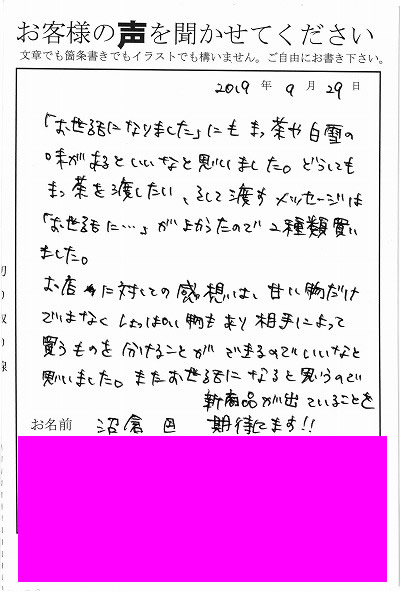 お客様の声を聞かせてください
文章でも箇条書きでもイラストでも構いません。ご自由にお書き下さい。
2019年9月29日
「お世話になりました」にもまっ茶や白雪の
味があるといいなと思いました。どうしても
まっ茶を渡したい、そして渡すメッセージは
「お世話に…」がよかったので2種類買い
ました。
お店に対しての感想は、甘い物だけ
ではなくしょっぱい物もあり相手によって
買うものを分けることができるのでいいなと
思いました。またお世話になると思うので
新商品が出ていることを
お名前 沼倉 巴 期待してます!!
切り取り線